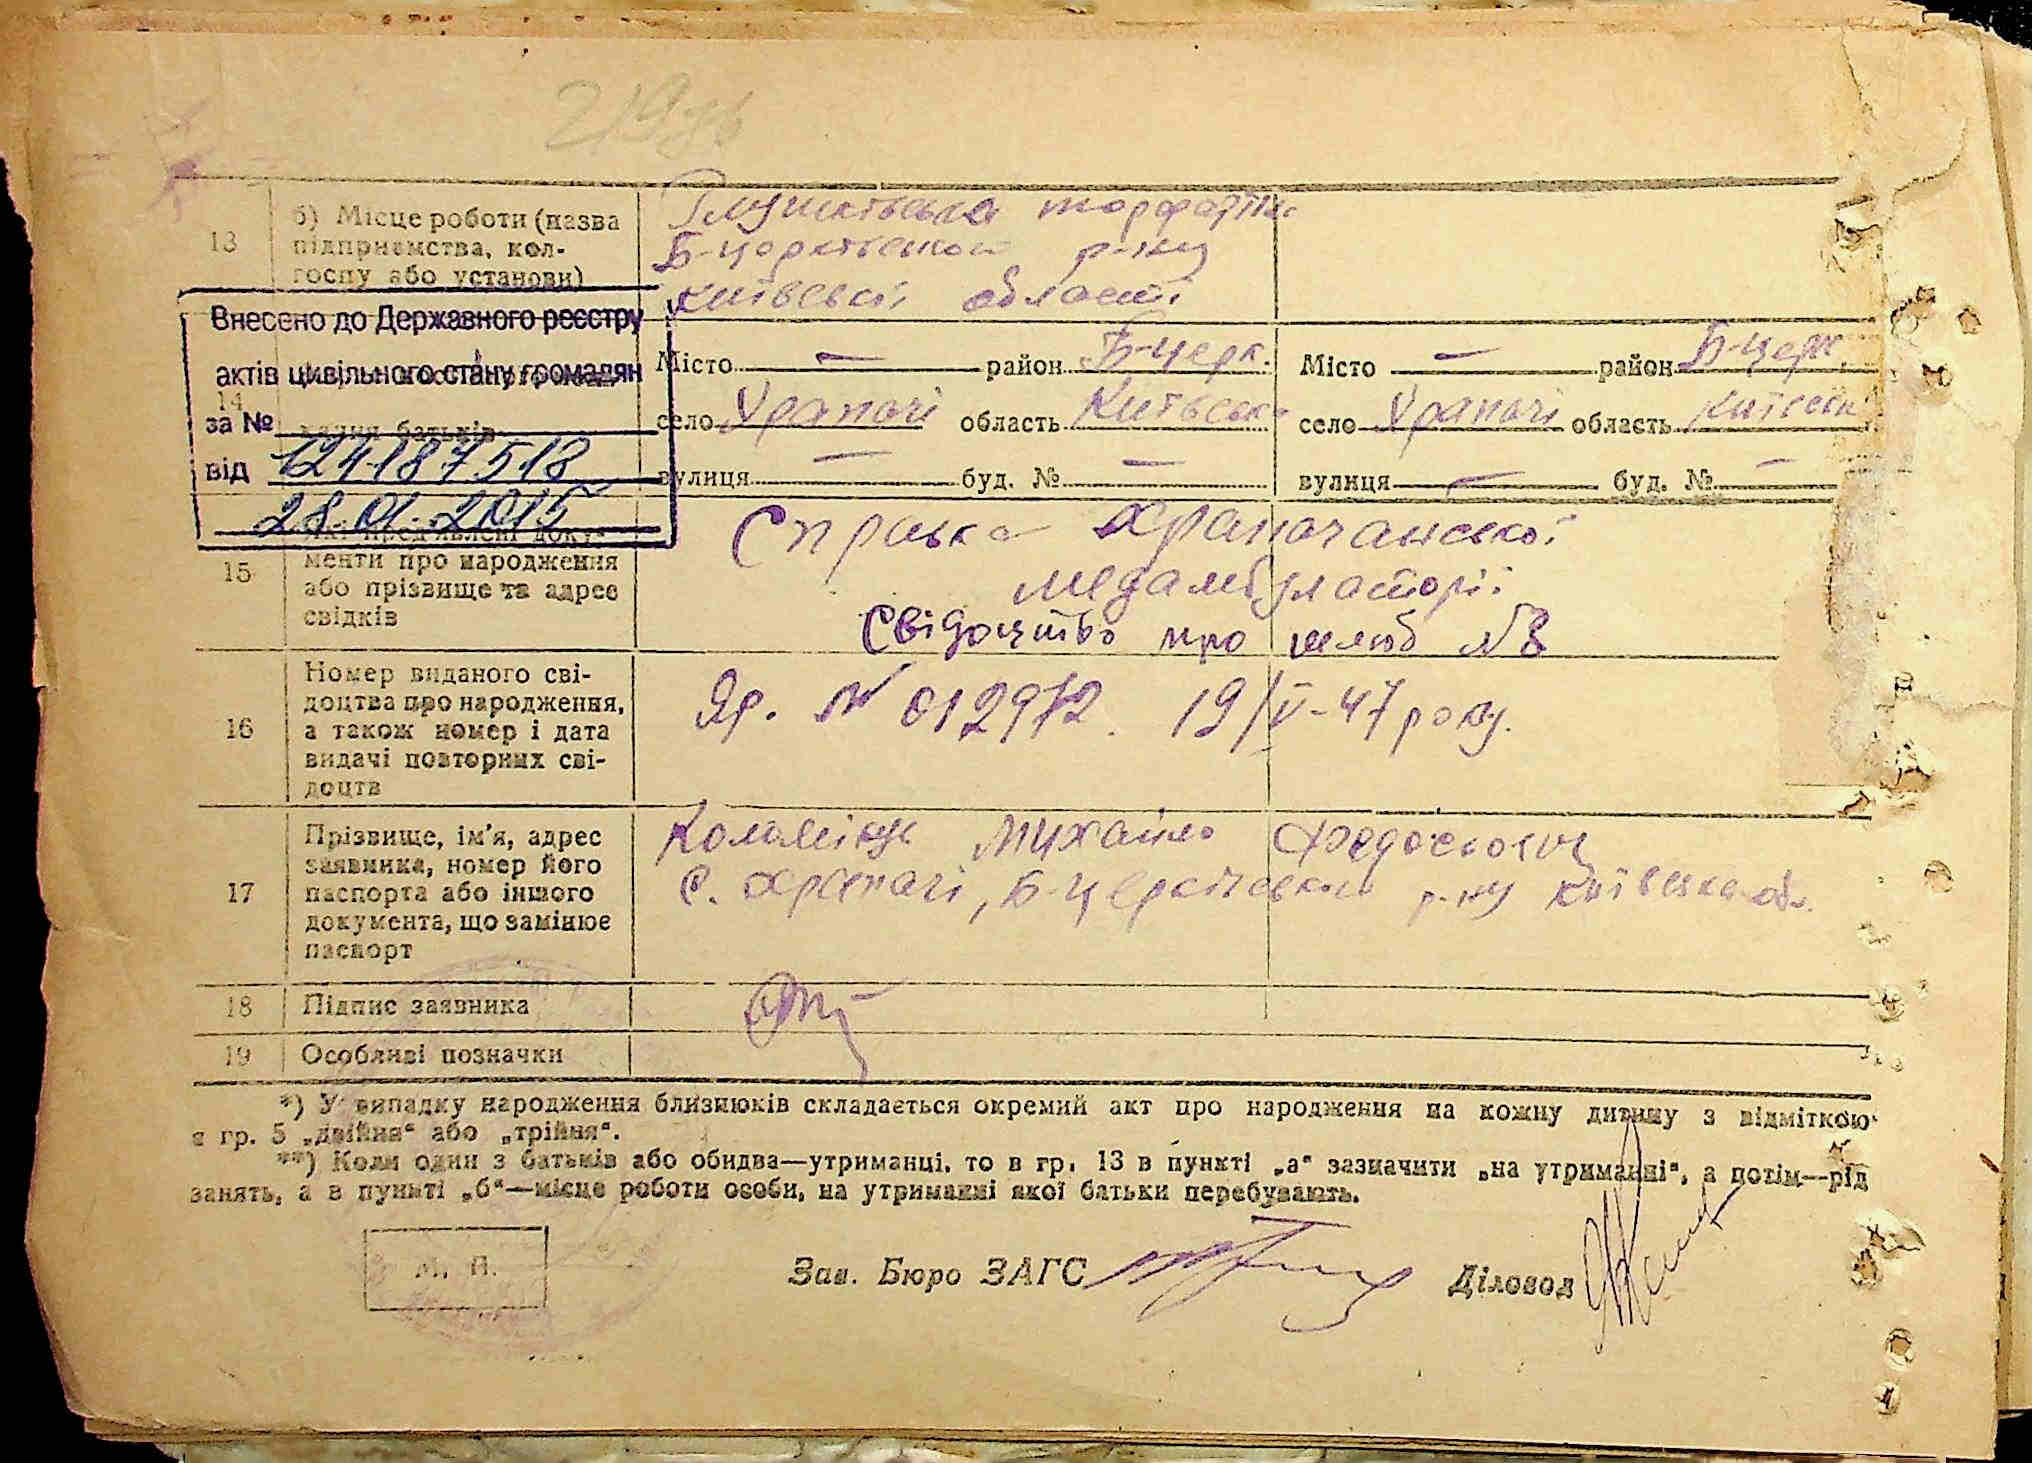 13
б) Місце роботи (назва
підприємства, кол-
госпу або установи)
Б-церківського р-ну
київської області
Внесено до Державного реєстру
актів цивільного стану громадян
за №
від 124187518
28.01.2015
14
Місто — район Б-церк.
село Храпачі область Київськ
вулиця — буд. № —
Місто — район Б-церк
село Храпачі область Київськ
вулиця — буд. № —
15
менти про народження
або прізвище та адрес
свідків
Справка Храпачанської
медамбулаторії
Свідоцтво про шлюб №8
16
Номер виданого сві-
доцтва про народження,
а також номер і дата
видачі повторних сві-
доцтв
Яр. № 012972. 19/V-47 року.
17
Прізвище, ім'я, адрес
заявника, номер його
паспорта або іншого
документа, що замінює
паспорт
Коломієць Михайло Федосович
с. Храпачі, Б-церківського р-ну Київська об.
18
Підпис заявника
19
Особливі позначки
*) У випадку народження близнюків складається окремий акт про народження на кожну дитину з відміткою
в гр. 5 „двійня“ або „трійня“.
**) Коли один з батьків або обидва—утриманці, то в гр. 13 в пункті „а“ зазначити „на утриманні“, а потім—рід
занять, а в пункті „б“—місце роботи особи, на утриманні якої батьки перебувають.
М. П.
Зав. Бюро ЗАГС
Діловод